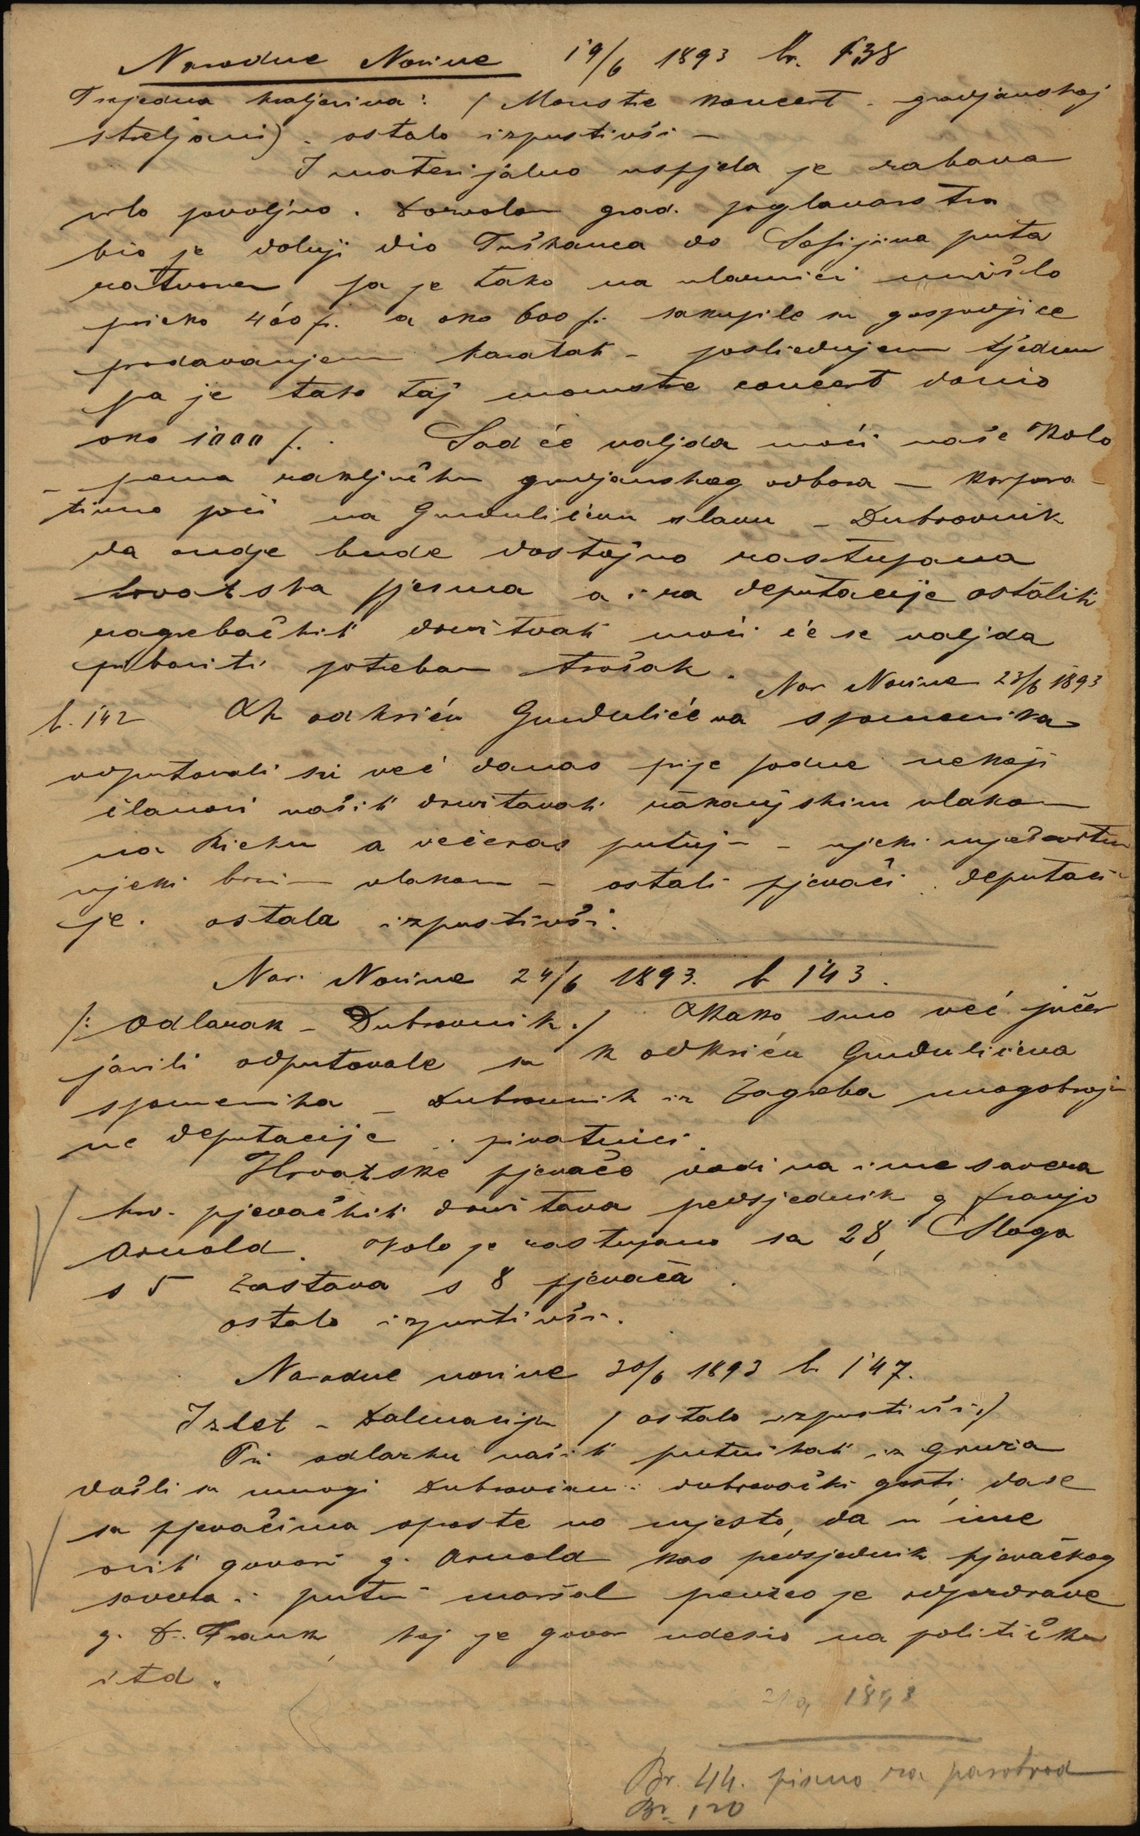 Narodne Novine 19/6 1893 br. 138
(Monstre koncert građanskoj
streljani) i ostalo izpustivši –
I materijalno uspjela je zabava
vrlo povoljno. Dozvolom grad. poglavarstva
bio je dolnji dio Tuškanca do Sofijina puta
zatvoren pa je tako na ulaznici unišlo
preko 400 f. a oko 600 f. sakupile su gospodjice
prodavanjem karatah – posliednjem tjednu
pa je tako taj monstre concert donio
oko 1000 f. Sad će valjda moći naše Kolo
– prema zaključku gradjanskog odbora – korpora
tivno poći na Gundulićevu slavu u Dubrovnik
da ondje bude dostojno zastupana
hrvatska pjesma a i za deputacije ostalih
zagrebačkih družtvah moći će se valjda
pribaviti potreban trošak.
Nar Novine 23/6 1893
b. 142 Ak odkriću Gundulićeva spomenika
odputovali su već danas prije podne nekoji
članovi naših družtavah zakanjskim vlakom
na Rieku a večeras putuju – njeki mješovitim
njeki brzim vlakom – ostali pjevači i deputaci
je. ostala izpustivši.
Nar. Novine 24/6 1893. b 143.
/: Odlazak u Dubrovnik :/ Kako smo već jučer
javili odputovale su k odkriću Gundulićeva
spomenika u Dubrovnik iz Zagreba mnogobroj
ne deputacije i privatnici.
Hrvatske pjevače vodi na ime saveza
hrv. pjevačkih družtava predsjednik g Franjo
Arnold. Kolo je zastupano sa 28, Sloga
s 5 Zastava s 8 pjevača.
ostalo izpustivši.
Narodne novine 30/6 1893 br 147.
Izlet u Dalmaciju / ostalo izpustivši /
Pri odlazku naših putnikah iz Gruža
došli su mnogi Dubrovčani i dubrovački gosti, da se
sa pjevačima oproste na mjesto, da u ime
ovih govori g. Arnold kao predsjednik pjevačkog
saveza i putni maršal preuzeo je odpozdrave
g. Dr. Frank, koj je govor udesio na politiku
itd.
1893
Br. 44. pismo za parobrod
Br. 120